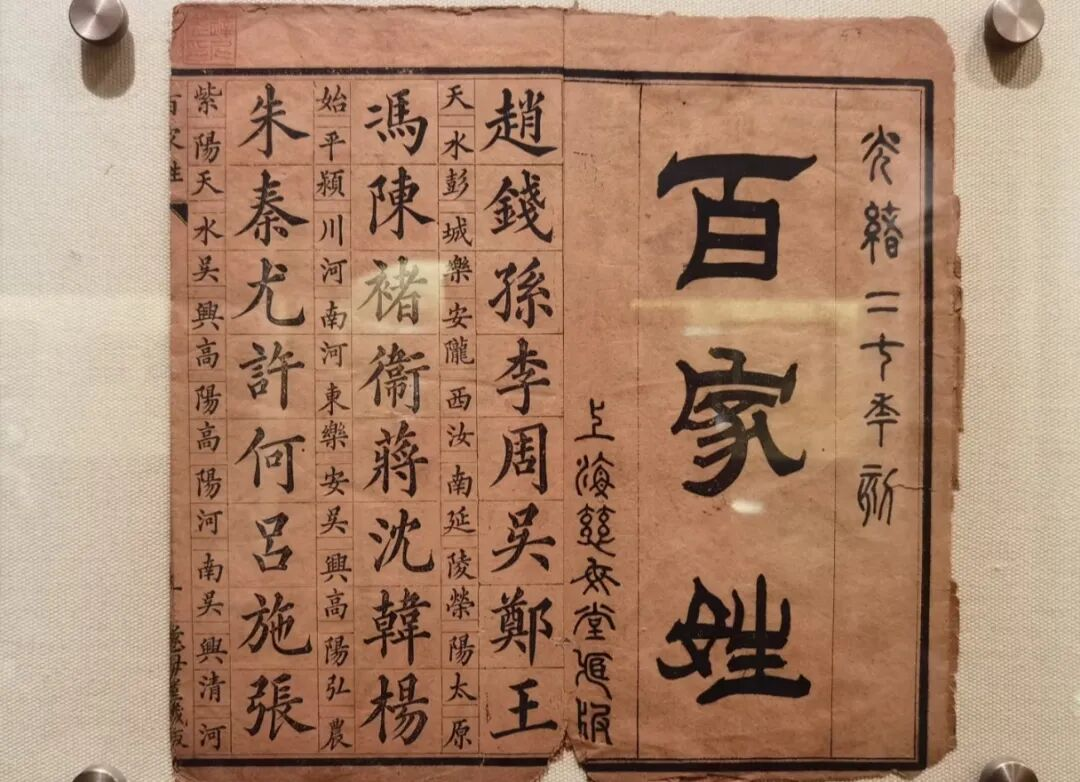 光緒二七年刻
百家姓
上海慈母堂版
趙錢孫李周吳鄭王
天水彭城樂安隴西汝南延陵榮陽太原
馮陳褚衛蔣沈韓楊
始平潁川河南河東樂安吳興高陽弘農
朱秦尤許何呂施張
紫陽天水吳興高陽高陽河南吳興清河
百家姓
慈母堂藏版